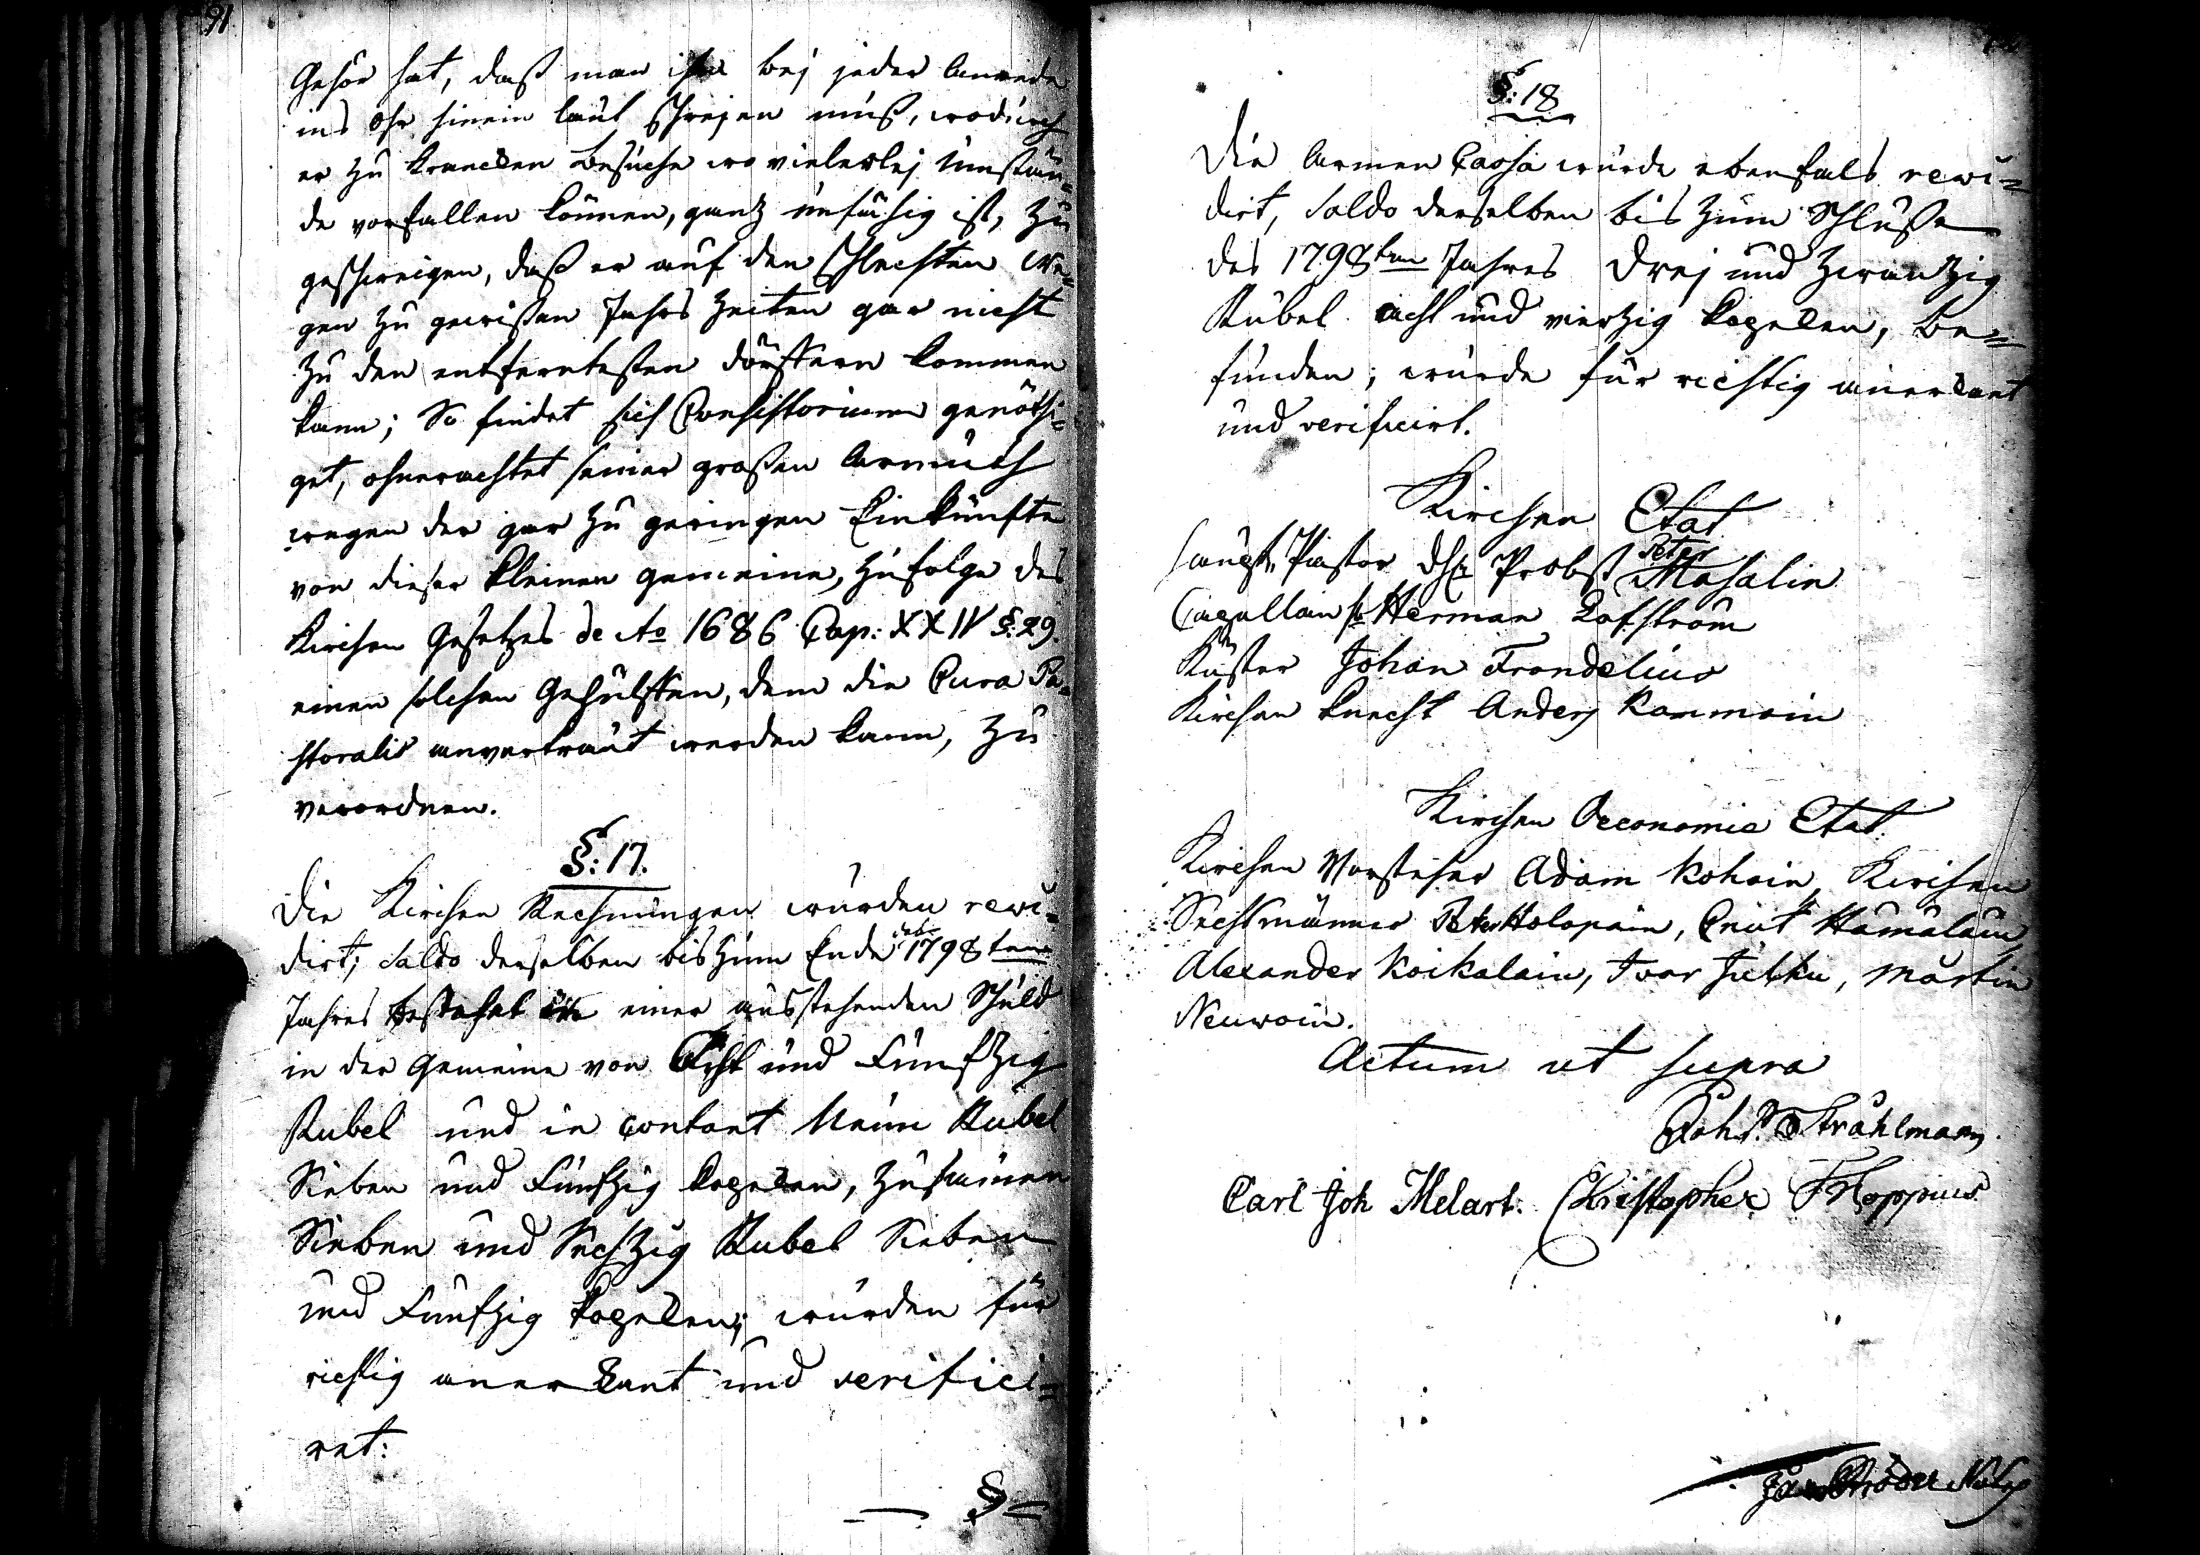 91
Gehör hat, daß man ihm bej jeder Anrede
ins Ohr hinein laut schrejen muß, wodurch
er zu Krancken Besuche wo vielerlej Umstän=
de vorfallen können, ganz unfähig ist, zu
geschweigen, daß er auf den schlechten We=
gen zu gewißen Jahrs Zeiten gar nicht
zu den entferntesten Dörffern kommen
kann; So findet sich Consistorium genöthi=
get, ohnerachtet seiner großen Armuth
wegen der gar zu geringen Einkünfte
von dieser kleinen Gemeine, zufolge des
Kirchen Gesetzes de Ao 1686 Cap: XXIV §: 29.
einen solchen Gehülffen, dem die Cura Pa=
storalis anvertraut werden kann, zu
verordnen.
§: 17.
Die Kirchen Rechnungen wurden revi=
dirt; Saldo derselben bis zum Ende des 1798ten
Jahres bestehet in einer ausstehenden Schuld
in der Gemeine von Acht und Funfzig
Rubel und in contant Neun Rubel
Sieben und Funfzig Kopeken, zusammen
Sieben und Sechzig Rubel Sieben
und Funfzig Kopeken; wurden für
richtig anerkant und verifici=
ret:
§
§: 18
Die Armen Cassa wurde ebenfals revi=
dirt, Saldo derselben bis zum Schluße
des 1798ten Jahres Drej und Zwantzig
Rubel acht und viertzig Kopeken, be=
funden; wurde für richtig anerkant
und verificirt.
Kirchen Etat
Haupt Pastor Probst Peter Masalin
Capellain Herman Lofström
Küster Johan Frondelius
Kirchen Knecht Anders Kammoin
Kirchen Oeconomie Etat.
Kirchen Vorsteher Adam Kohoin, Kirchen
Sechsmänner Peter Holopain, Cnut Hämäläin,
Alexander Koikalain, Ivar Jutku, Martin
Neuwoin.
Actum ut supra
Joh. Strahlmann.
Carl Joh Melart. Christopher F Hoppius